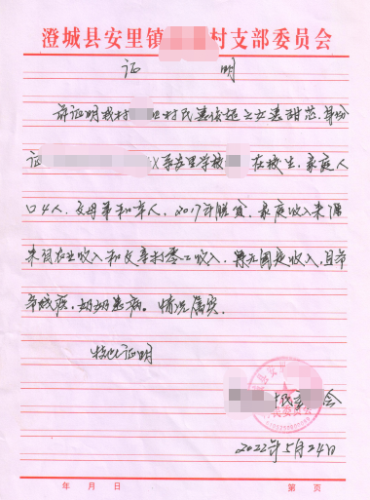 澄城县安里镇 村支部委员会
证 明
兹证明我村 村民 之女 甜芯,身份
证 系安里学校 在校生,家庭人
口4人,父母弟和本人,2017年脱贫,家庭收入来源
来自农业收入和父亲打零工收入,无固定收入,且爷
爷残疾,奶奶患病。情况属实。
特此证明
民委 会
2022年5月24日
年 月 日 第 页